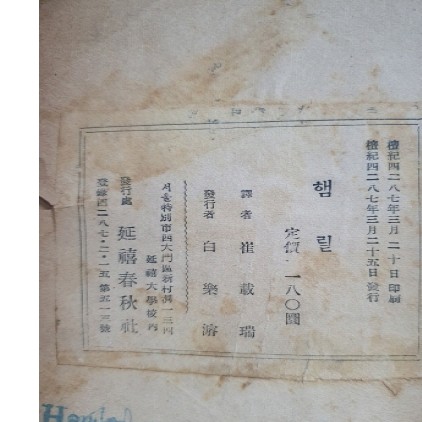 檀紀四二八七年三月二十日 印刷
檀紀四二八七年三月二十五日 發行
햄릴
定價 · 一八〇圜
譯者 崔載瑞
發行者 白樂濬
서울特別市西大門區新村洞一三四
延禧大學校內
發行處 延禧春秋社
登錄四二八七·二·一五 第五一三號